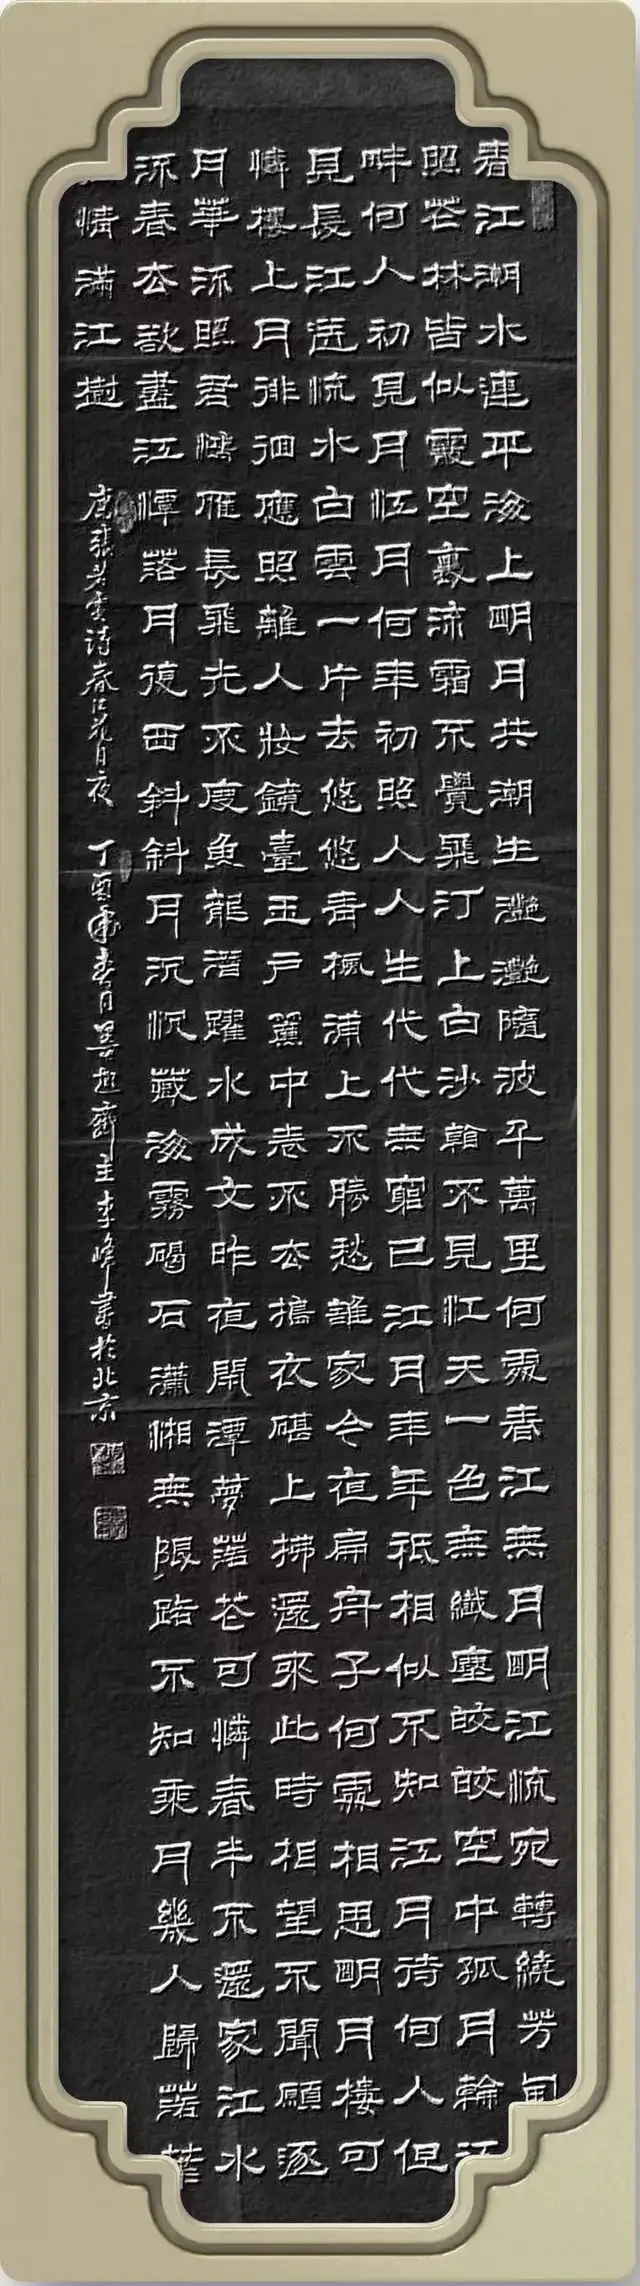 春江潮水連平海上明月共潮生灩灩隨波千萬里何處春江無月明江流宛轉繞芳甸
照花林皆似霰空裏流霜不覺飛汀上白沙看不見江天一色無纖塵皎皎空中孤月輪江
畔何人初見月江月何年初照人人生代代無窮已江月年年祇相似不知江月待何人但
見長江送流水白雲一片去悠悠青楓浦上不勝愁誰家今夜扁舟子何處相思明月樓可
憐樓上月徘徊應照離人妝鏡臺玉戶簾中卷不去擣衣砧上拂還來此時相望不聞願逐
月華流照君鴻雁長飛光不度魚龍潛躍水成文昨夜閒潭夢落花可憐春半不還家江水
流春去欲盡江潭落月復西斜斜月沉沉藏海霧碣石瀟湘無限路不知乘月幾人歸落
情滿江樹
唐張若虛詩春江花月夜 丁酉年春月 齋主李峰書於北京